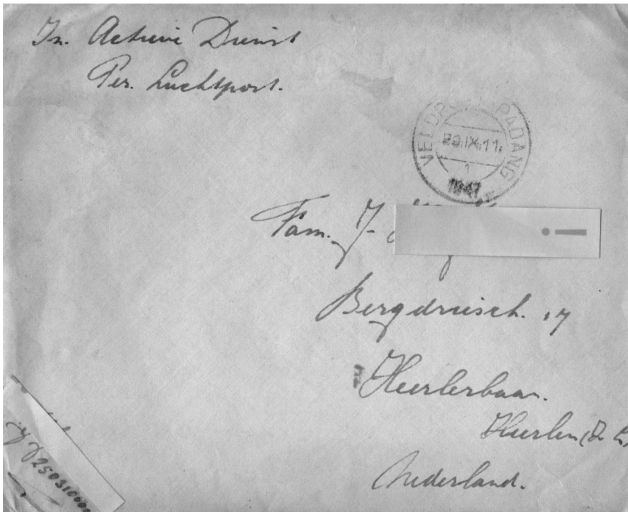 In Actieve Dienst
Per Luchtpost.
VELDPOST PADANG
29.IX.11
1
1947
Fam. J.
Bergdriesch. 17
Heerlerbaan.
Heerlen (Z. L.)
Nederland.
250310000